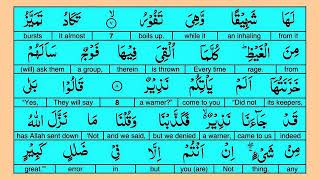 لَهَا شَهِيْقًا وَّهِىَ تَفُوْرُ ۷ تَكَادُ تَمَيَّزُ
from it an inhaling while it boils up. 7 It almost bursts
مِنَ الْغَيْظِ ؕ كُلَّمَاۤ اُلْقِىَ فِيْهَا فَوْجٌ سَاَلَهُمْ
from rage. Every time is thrown therein a group, (will) ask them
خَزَنَتُهَاۤ اَلَمْ يَاْتِكُمْ نَذِيْرٌ ۸ قَالُوْا بَلٰى
its keepers, "Did not come to you a warner?" 8 They will say "Yes,
قَدْ جَآءَنَا نَذِيْرٌ ۙ فَكَذَّبْنَا وَقُلْنَا مَا نَزَّلَ اللّٰهُ
indeed came to us a warner, but we denied and we said, 'Not has Allah sent down
مِنْ شَىْءٍ ۚ اِنْ اَنْتُمْ اِلَّا فِىْ ضَلٰلٍ كَبِيْرٍ
any thing. Not you (are) but in error great.'"